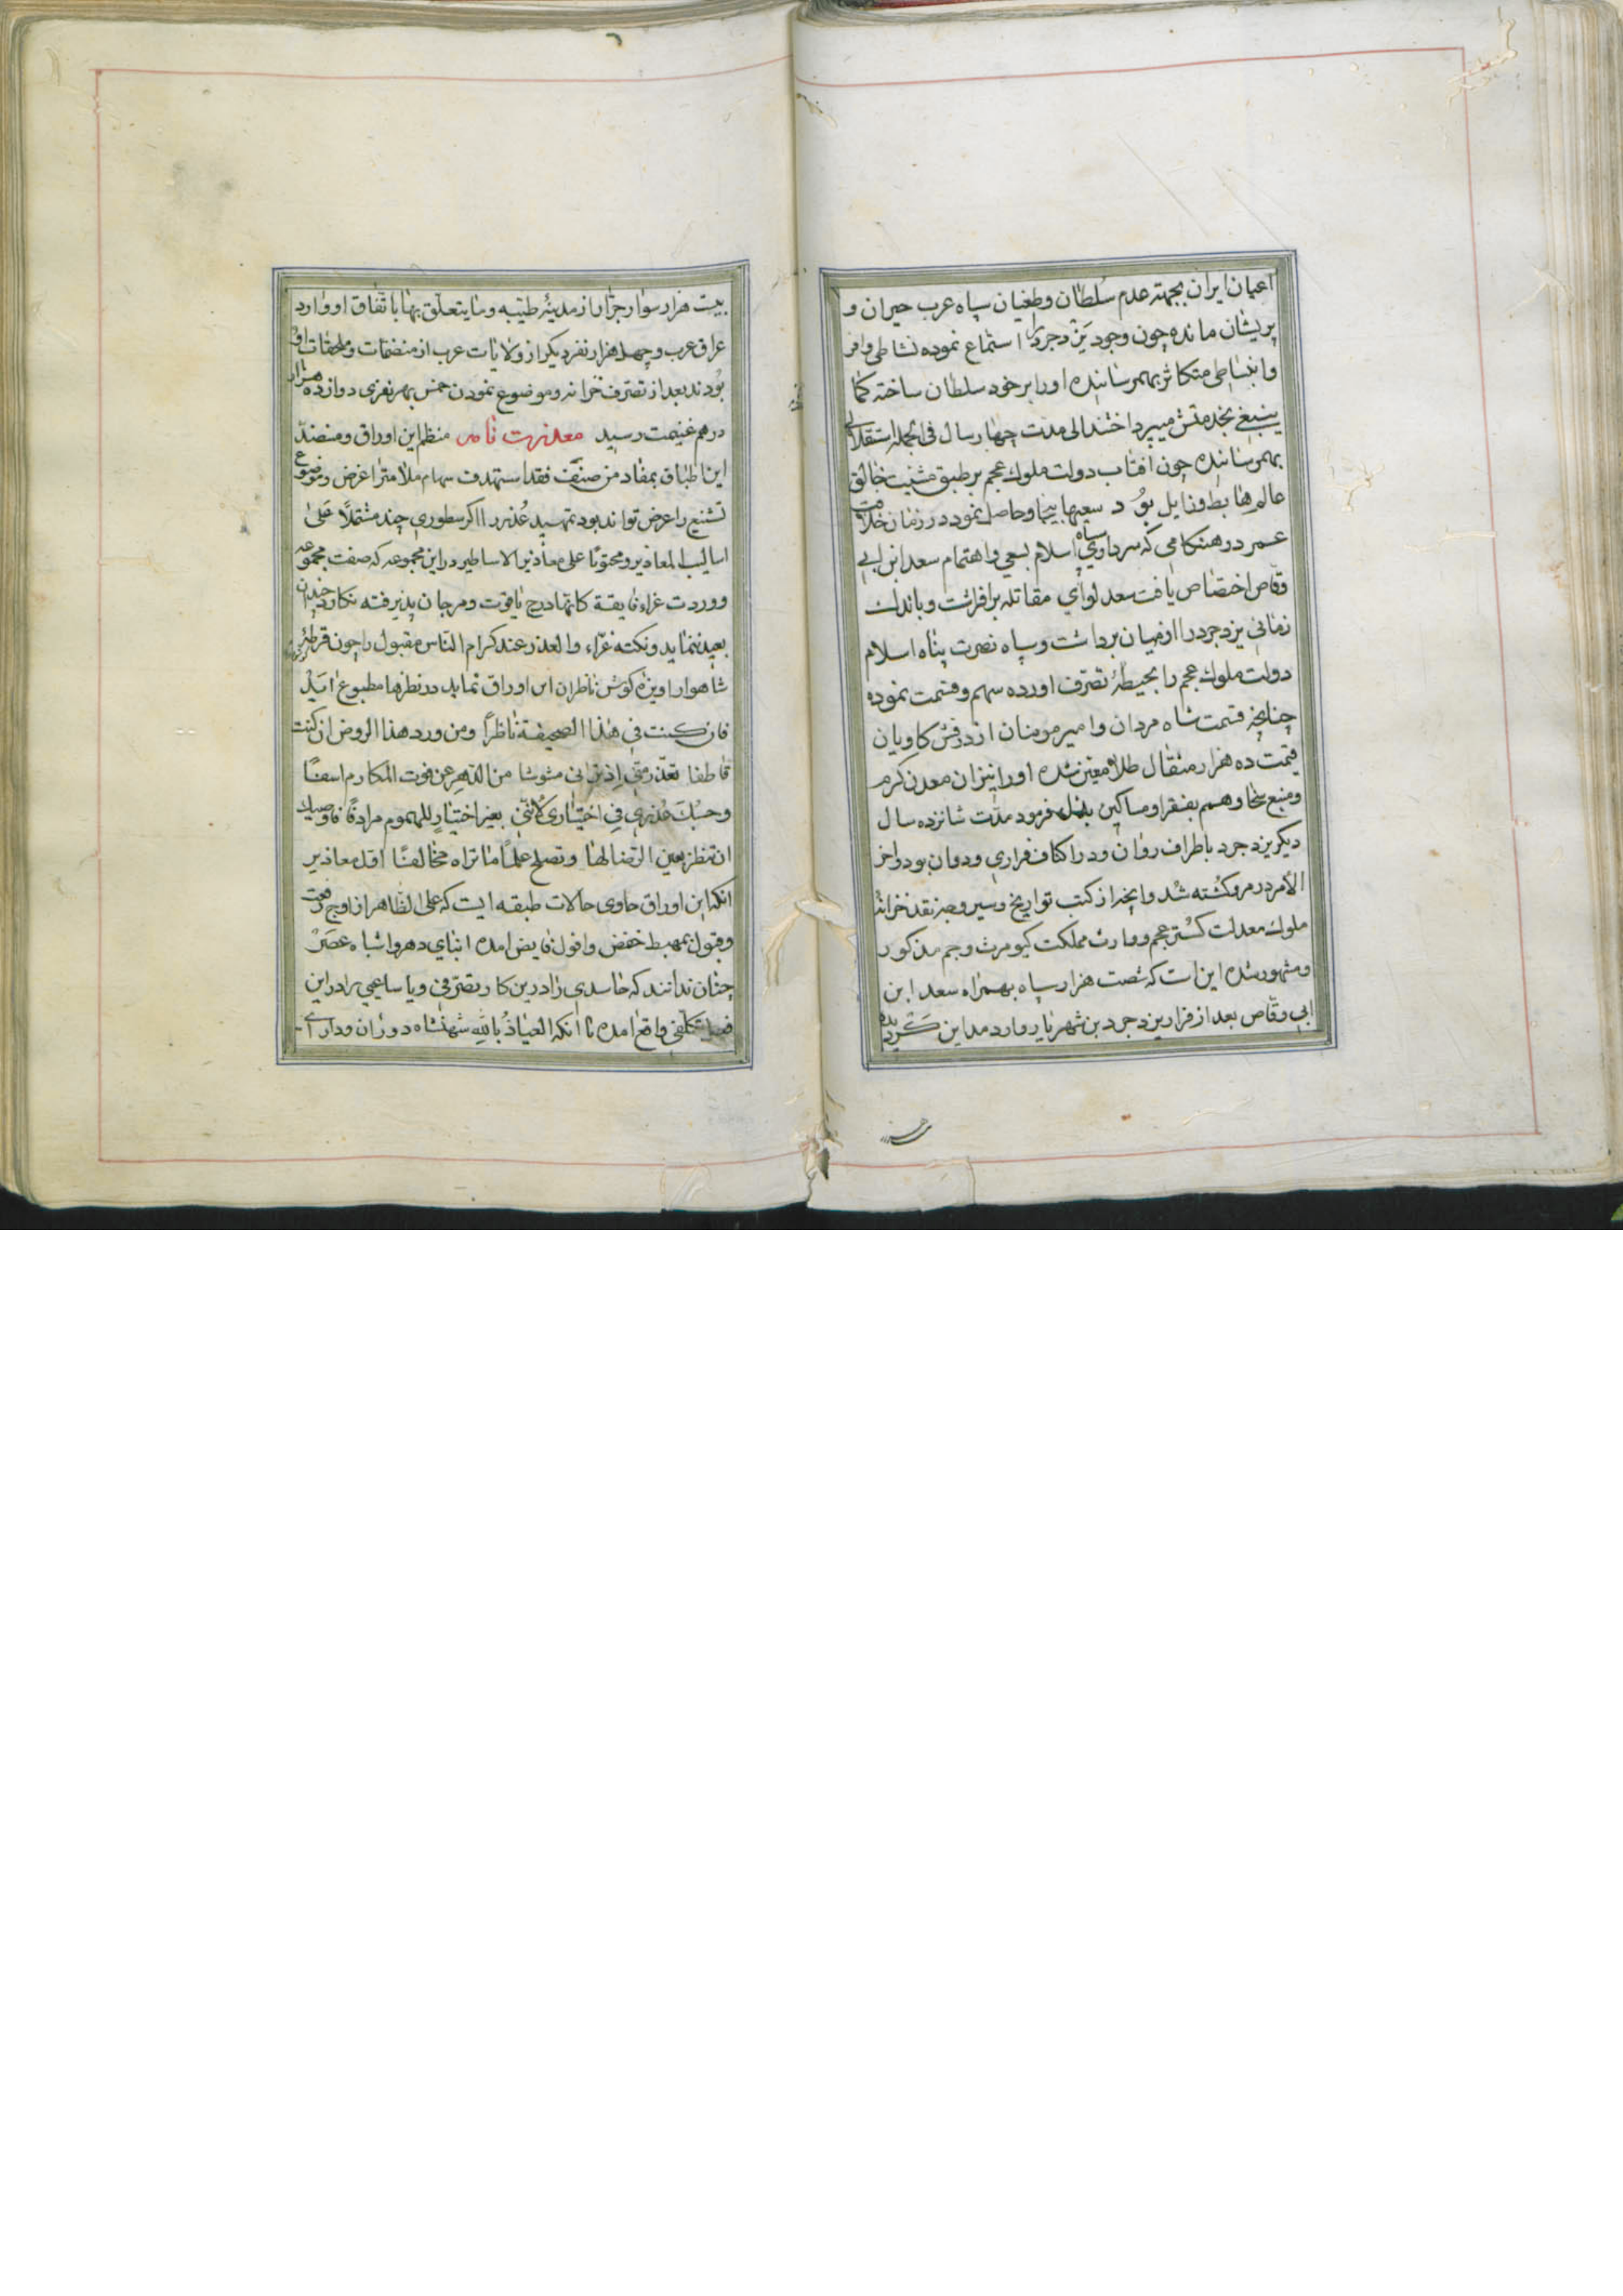 اعیان ایران بجهته عدم سلطان وطغیان سپاه عرب حیران و
پریشان مانده چون وجود یزدجرد را استماع نموده نشاطی وافر
وانبساطی متکاثر بهمرسانیده اورا بر خود سلطان ساخته کما
ینبغی بخدمتش میپرداختند الی مدت چهار سال فی الجمله استقلالی
بهمرسانیده چون افتاب دولت ملوک عجم بر طبق مشیت خالق
عالم هابط وزایل بود سعیها بیحاصل نمود در زمان خلافت
عمر در هنگامی که سرداری سپاه اسلام بسعی واهتمام سعد ابن ابی
وقاص اختصاص یافت سعد لوای مقاتله برافراشت وباندک
زمانی یزدجرد را از میان برداشت وسپاه نصرت پناه اسلام
دولت ملوک عجم را بحیطه تصرف اورده سهم وقسمت نموده
چنانچه قسمت شاه مردان وامیر مومنان از درفش کاویان
قیمت ده هزار مثقال طلا معین شده اورا نیز ان معدن کرم
ومنبع سخا وهمم بفقرا ومساکین بذل فرمود مدت شانزده سال
دیگر یزدجرد باطراف روان ودر اکناف فراری ودوان بود واخر
الامر در مرو کشته شد وانچه از کتب تواریخ وسیر وجه نقد خزانه
ملوک معدلت گستر عجم ووارث مملکت کیومرث وجم مذکور
ومشهور شده این است که شصت هزار سپاه بهمراه سعد ابن
ابی وقاص بعد از فرار یزدجرد بن شهریار وارد مداین گردیده
بیست هزار سوار جرار از مدینه طیبه وما یتعلق بها باتفاق او وارد
عراق عرب وچهل هزار نفر دیگر از ولایات عرب از منضمات وملحقات او
بودند بعد از تصرف خزانه وموضوع نمودن خمس بهر نفری دوازده هزار
درهم غنیمت رسید معذرت نامه منظم این اوراق ومنضد
این اطباق بمفاد من صنف فقد استهدف سهام ملامت را غرض وموضوع
تشنیع را عرض تواند بود تمهید عذر را اگر سطوری چند مشتملا علی
اسالیب المعاذیر ومحتویا علی معاذیر الاساطیر در این مجموعه که صفت مجموعه
ووردت غراء فایقة کانها درج یاقوت ومرجان پذیرفته بنگارد چندان
بعید ننماید ونکته غراء والعذر عند کرام الناس مقبول را چون قرطه
شاهوار اویزه گوش ناظران این اوراق نماید در نظرها مطبوع اید
فان کنت فی هذا الصحیفة ناظرا ومن ورد هذا الروض ان کنت
قاطفا تعذر منی اذ ترانی مشوشا من الدهر عن فوت المکارم اسفا
وحسبک عذری فی اختیاری لاننی بغیر اختیار للهموم مرادفا فاوصیک
ان تنظر بعین الرضا لها وتصلح علما ما تراه مخالفا اقل معاذیر
انکه این اوراق حاوی حالات طبقه ایست که علی الظاهر از اوج رفعت
وقبول بمهبط خفض وافول فایض امده ابنای دهر واشباه عصر
چنان ندانند که حاسدی را در این کار تصرفی ویا ساعیی را در این
تکلفی واقع امده تا انکه العیاذ بالله شهنشاه دوران ودارای
بیست